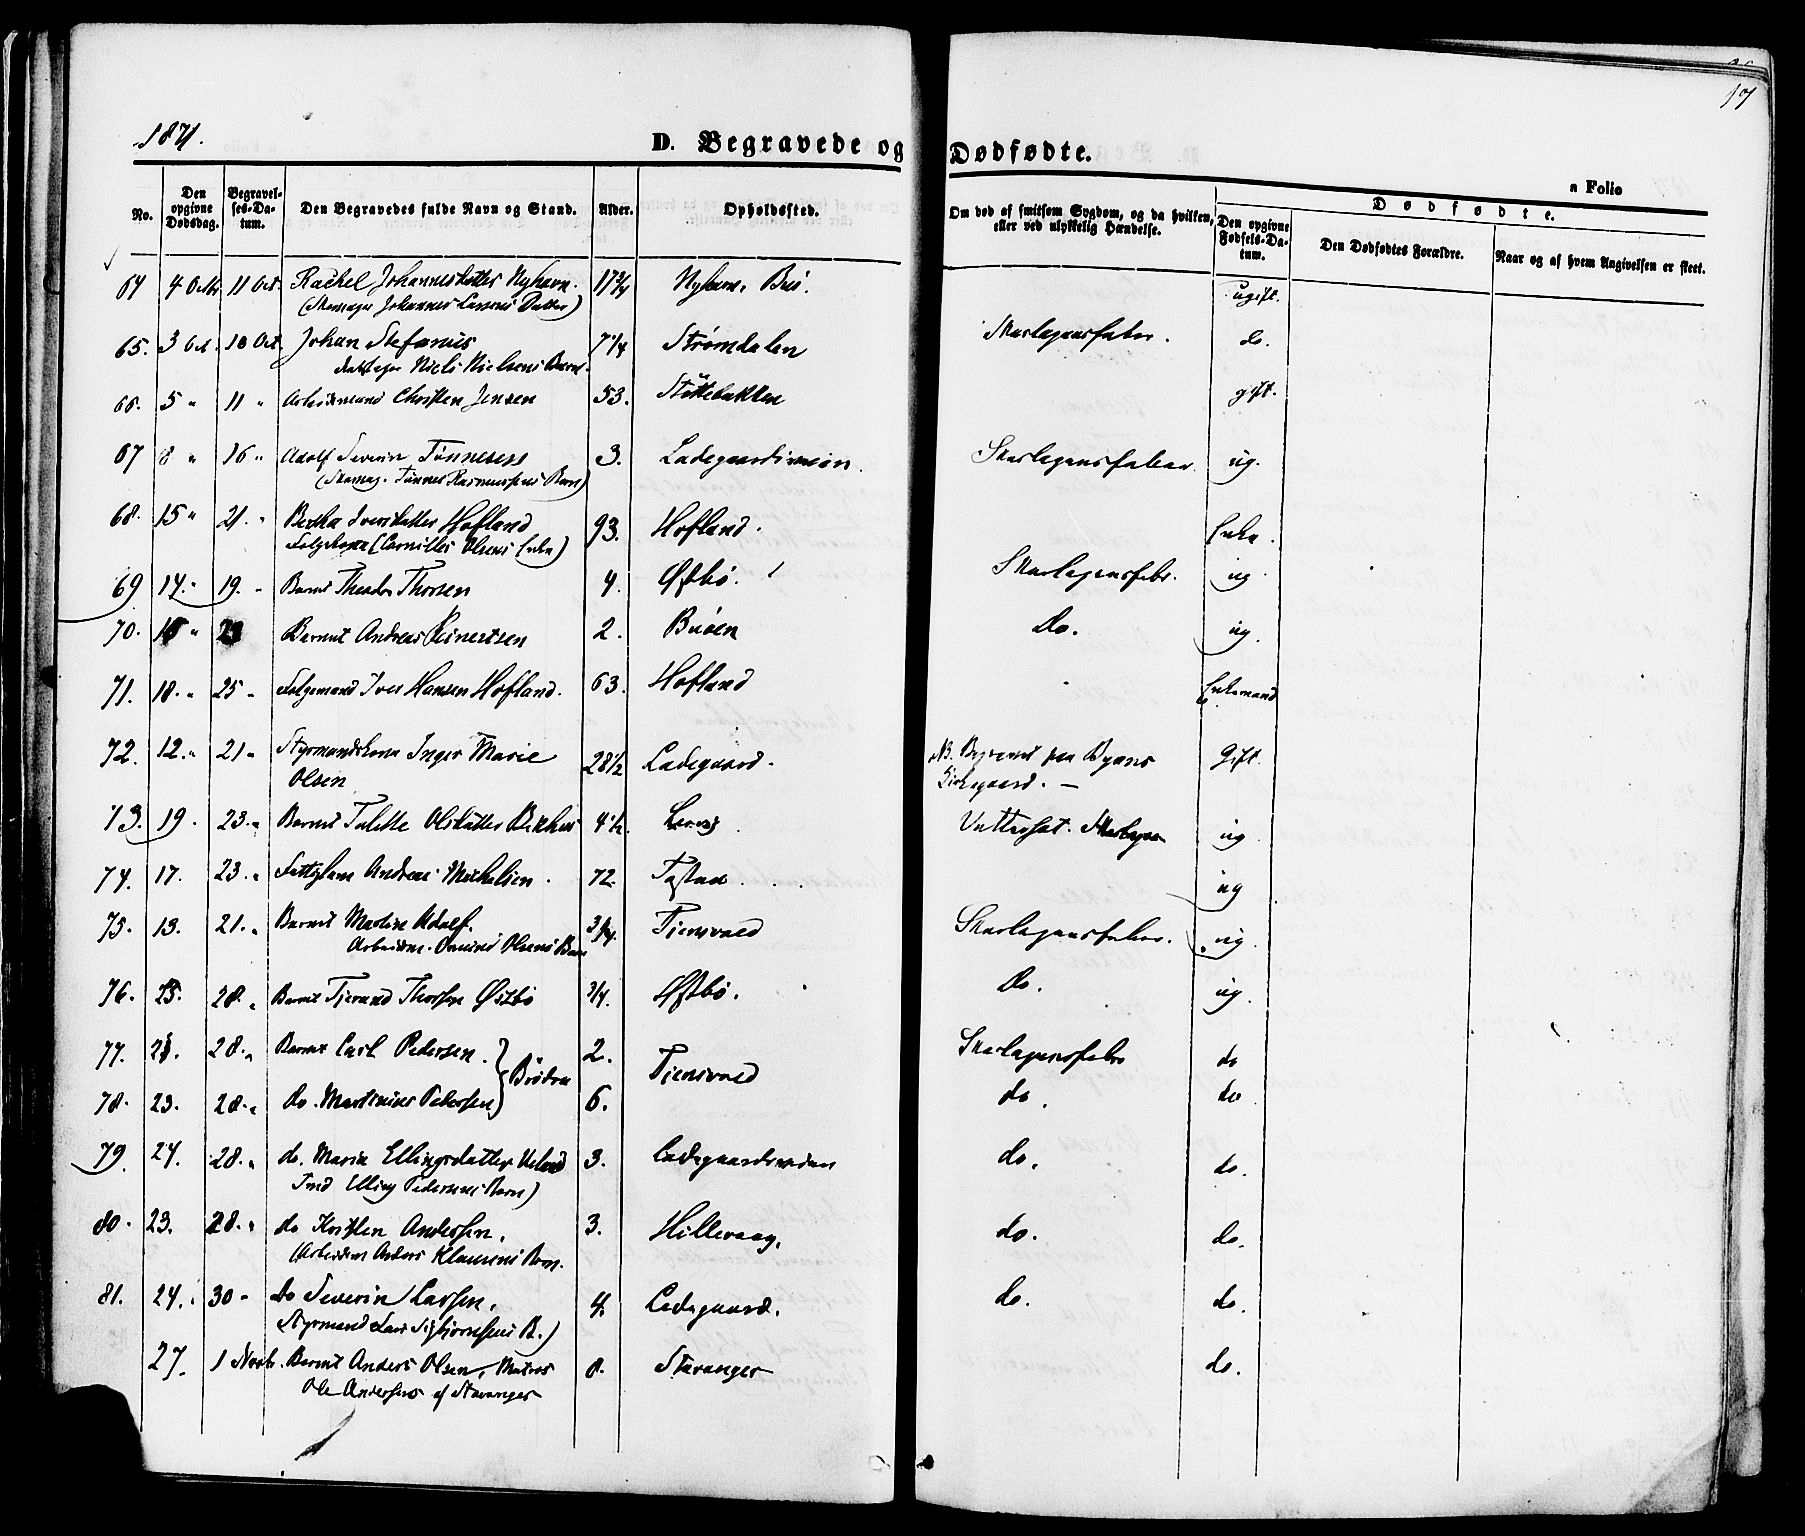 17
1871.
D. Begravede og Dødfødte.
a Folio
No.
Den opgivne Dødsdag.
Begravelses-Datum.
Den Begravedes fulde Navn og Stand.
Alder.
Opholdssted.
Om død af smitsom Sygdom, og da hvilken, eller ved ulykkelig Hændelse.
Dødfødte.
Den opgivne Fødsels-Datum.
Den Dødfødtes Forældre.
Naar og af hvem Angivelsen er skeet.
64 4 Octbr 11 Oct. Rachel Johannesdatter Nyhavn. 17 3/4 Nyhavn. Buø. ugift.
(Skomager Johannes Larsens Datter)
65. 3 Oct. 10 Oct. Johan Stefanus 7 1/4 Strømdalen Skarlagensfeber. do.
Niels Nielsens Barn.
66. 5 " 11 " Arbeidsmand Christen Jensen 53. Støttebakken gift.
67 8 " 16 " Adolf Severin Tønnesen 3. Ladegaardsveien. Skarlagensfeber ug.
(Skomag. Tønnes Rasmussens Barn)
68. 15 " 21. " Bertha Iversdatter Hofland 93. Hofland. Enke.
Folgekone (Cornilles Olsens Enke)
69 14. " 19. " Barnet Theodor Thorsen 4. Østbø. Skarlagensfebr. ug
70. 15 " 23 Barnet Andreas Reinertsen 2. Buøen Do. ug.
71. 18. " 25 " Folgemand Iver Hansen Hofland. 63. Hofland Enkemand
72. 12. " 21 " Styrmandskone Inger Marie 28 1/2 Ladegaard. NB. Begravet paa Byens Gift.
Olsen Kirkegaard. —
73. 19. 23. " Barnet Talette Olsdatter 4 1/2. Vattersot. Skarlagen ug
74. 17. 23. " Andreas Michelsen. 72. Tastad. ug
75. 13. 21. " Barnet Martin Adolf. 3/4. Tjensvold Skarlagensfeber. ug.
Arbeidsm. Olsens Barn
76. 25. 28. " Barnet Tjerand Thorsen Østbø 3/4. Østbø. Do. ug.
77. 28. " Barnet Carl Pedersen. } Brødre 2. Tjensvold Skarlagensfebr do
78. 23. 28. " do. Martinius Pedersen 6. do. do
79. 24. 28. " do. Maria Ellingsdatter 3. Ladegaardsveien do. do.
Elling Pedersens Barn)
80. 23. 28. " do Kristen Andersen. 3. Hillevaag. do. do.
(Arbeidsm Anders Klausens Barn.
81. 24. 30 " do Severin Larsen. 4. Ladegaard. do. do.
Styrmand Lars Sigbjørnsens B.)
27. 1 Novbr. Barnet Anders Olsen, Matros 8. Stavanger do.
Ole Andersens af Stavanger